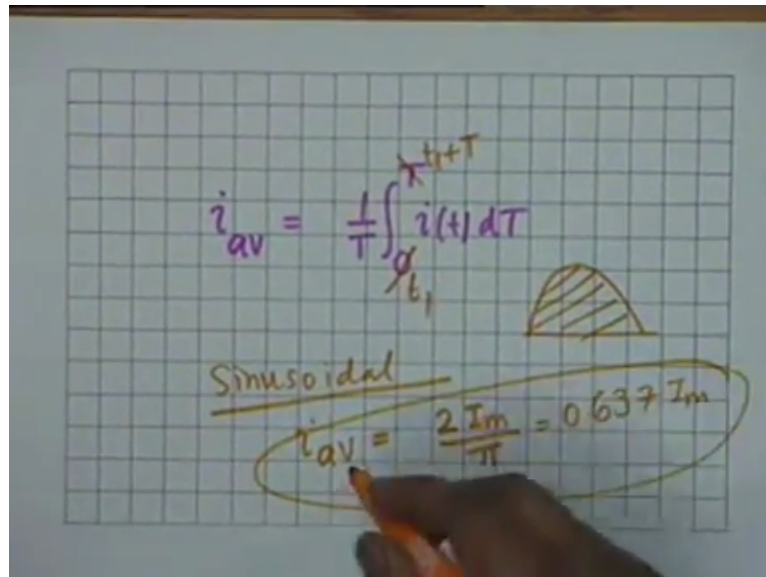 i_av = 1/T ∫ 0 t₁ T t₁+T i(t) dT
Sinusoidal
i_av = 2 Im/π = 0637 Im